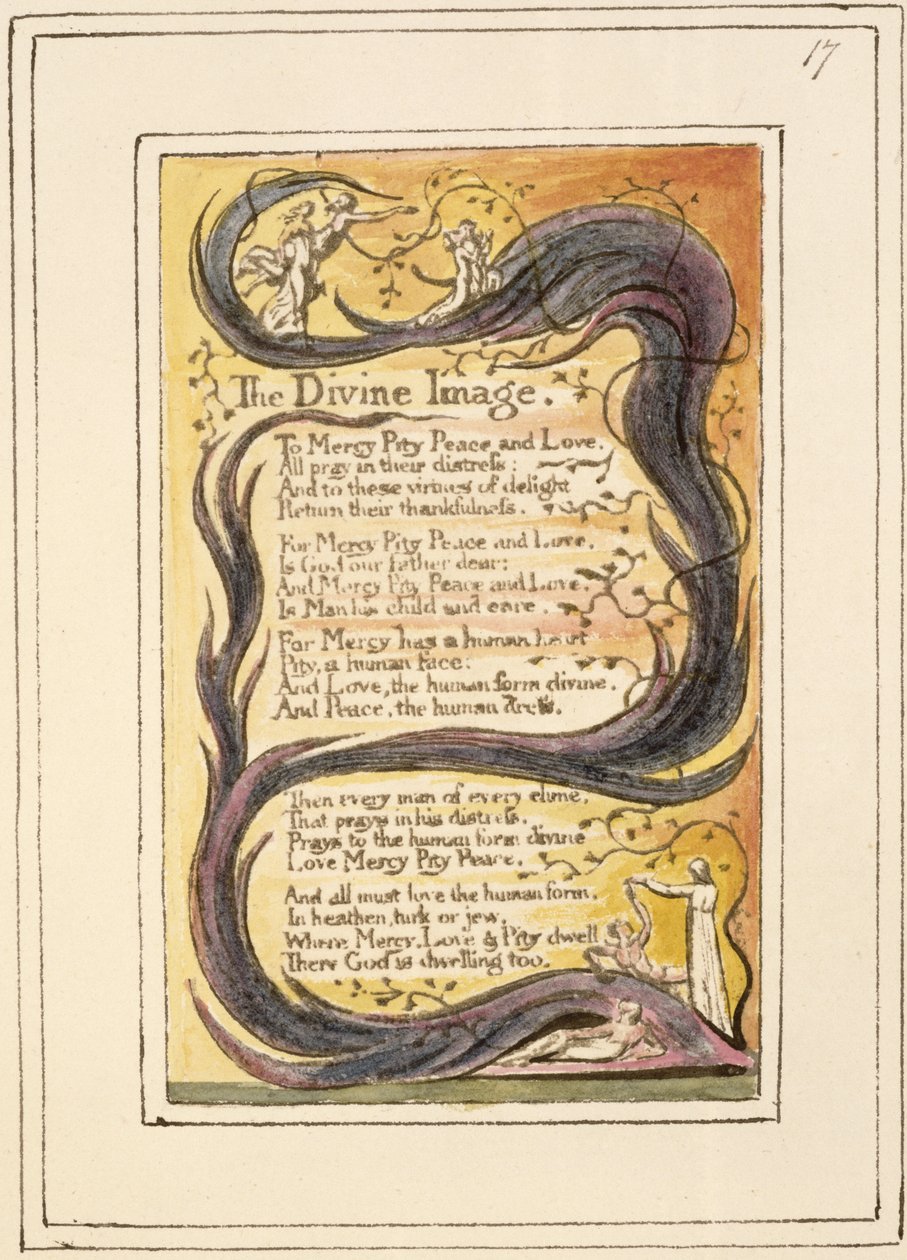 17
The Divine Image.
To Mercy Pity Peace and Love,
All pray in their distreſs:
And to these virtues of delight
Return their thankfulneſs.
For Mercy Pity Peace and Love,
Is God our father dear:
And Mercy Pity Peace and Love,
Is Man his child and care.
For Mercy has a human heart
Pity, a human face:
And Love, the human form divine,
And Peace, the human dreſs.
Then every man of every clime,
That prays in his distreſs,
Prays to the human form divine
Love Mercy Pity Peace.
And all must love the human form,
In heathen, turk or jew,
Where Mercy, Love & Pity dwell
There God is dwelling too.